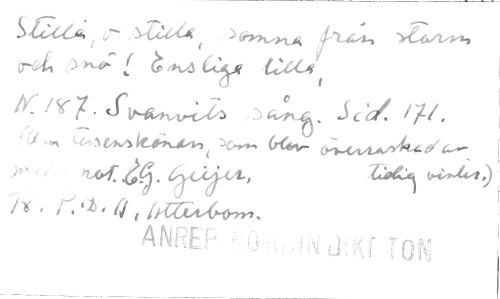 Stilla, o stilla, somna från storm
och snö! Ensliga lilla,
N. 187. Svanvits sång. Sid. 171.
(Om tusenskönan, som blev överraskad av
med not. E.G. Geijer. tidig vinter.)
Tx. P.D.A. Atterbom.
ANREP-NORDIN